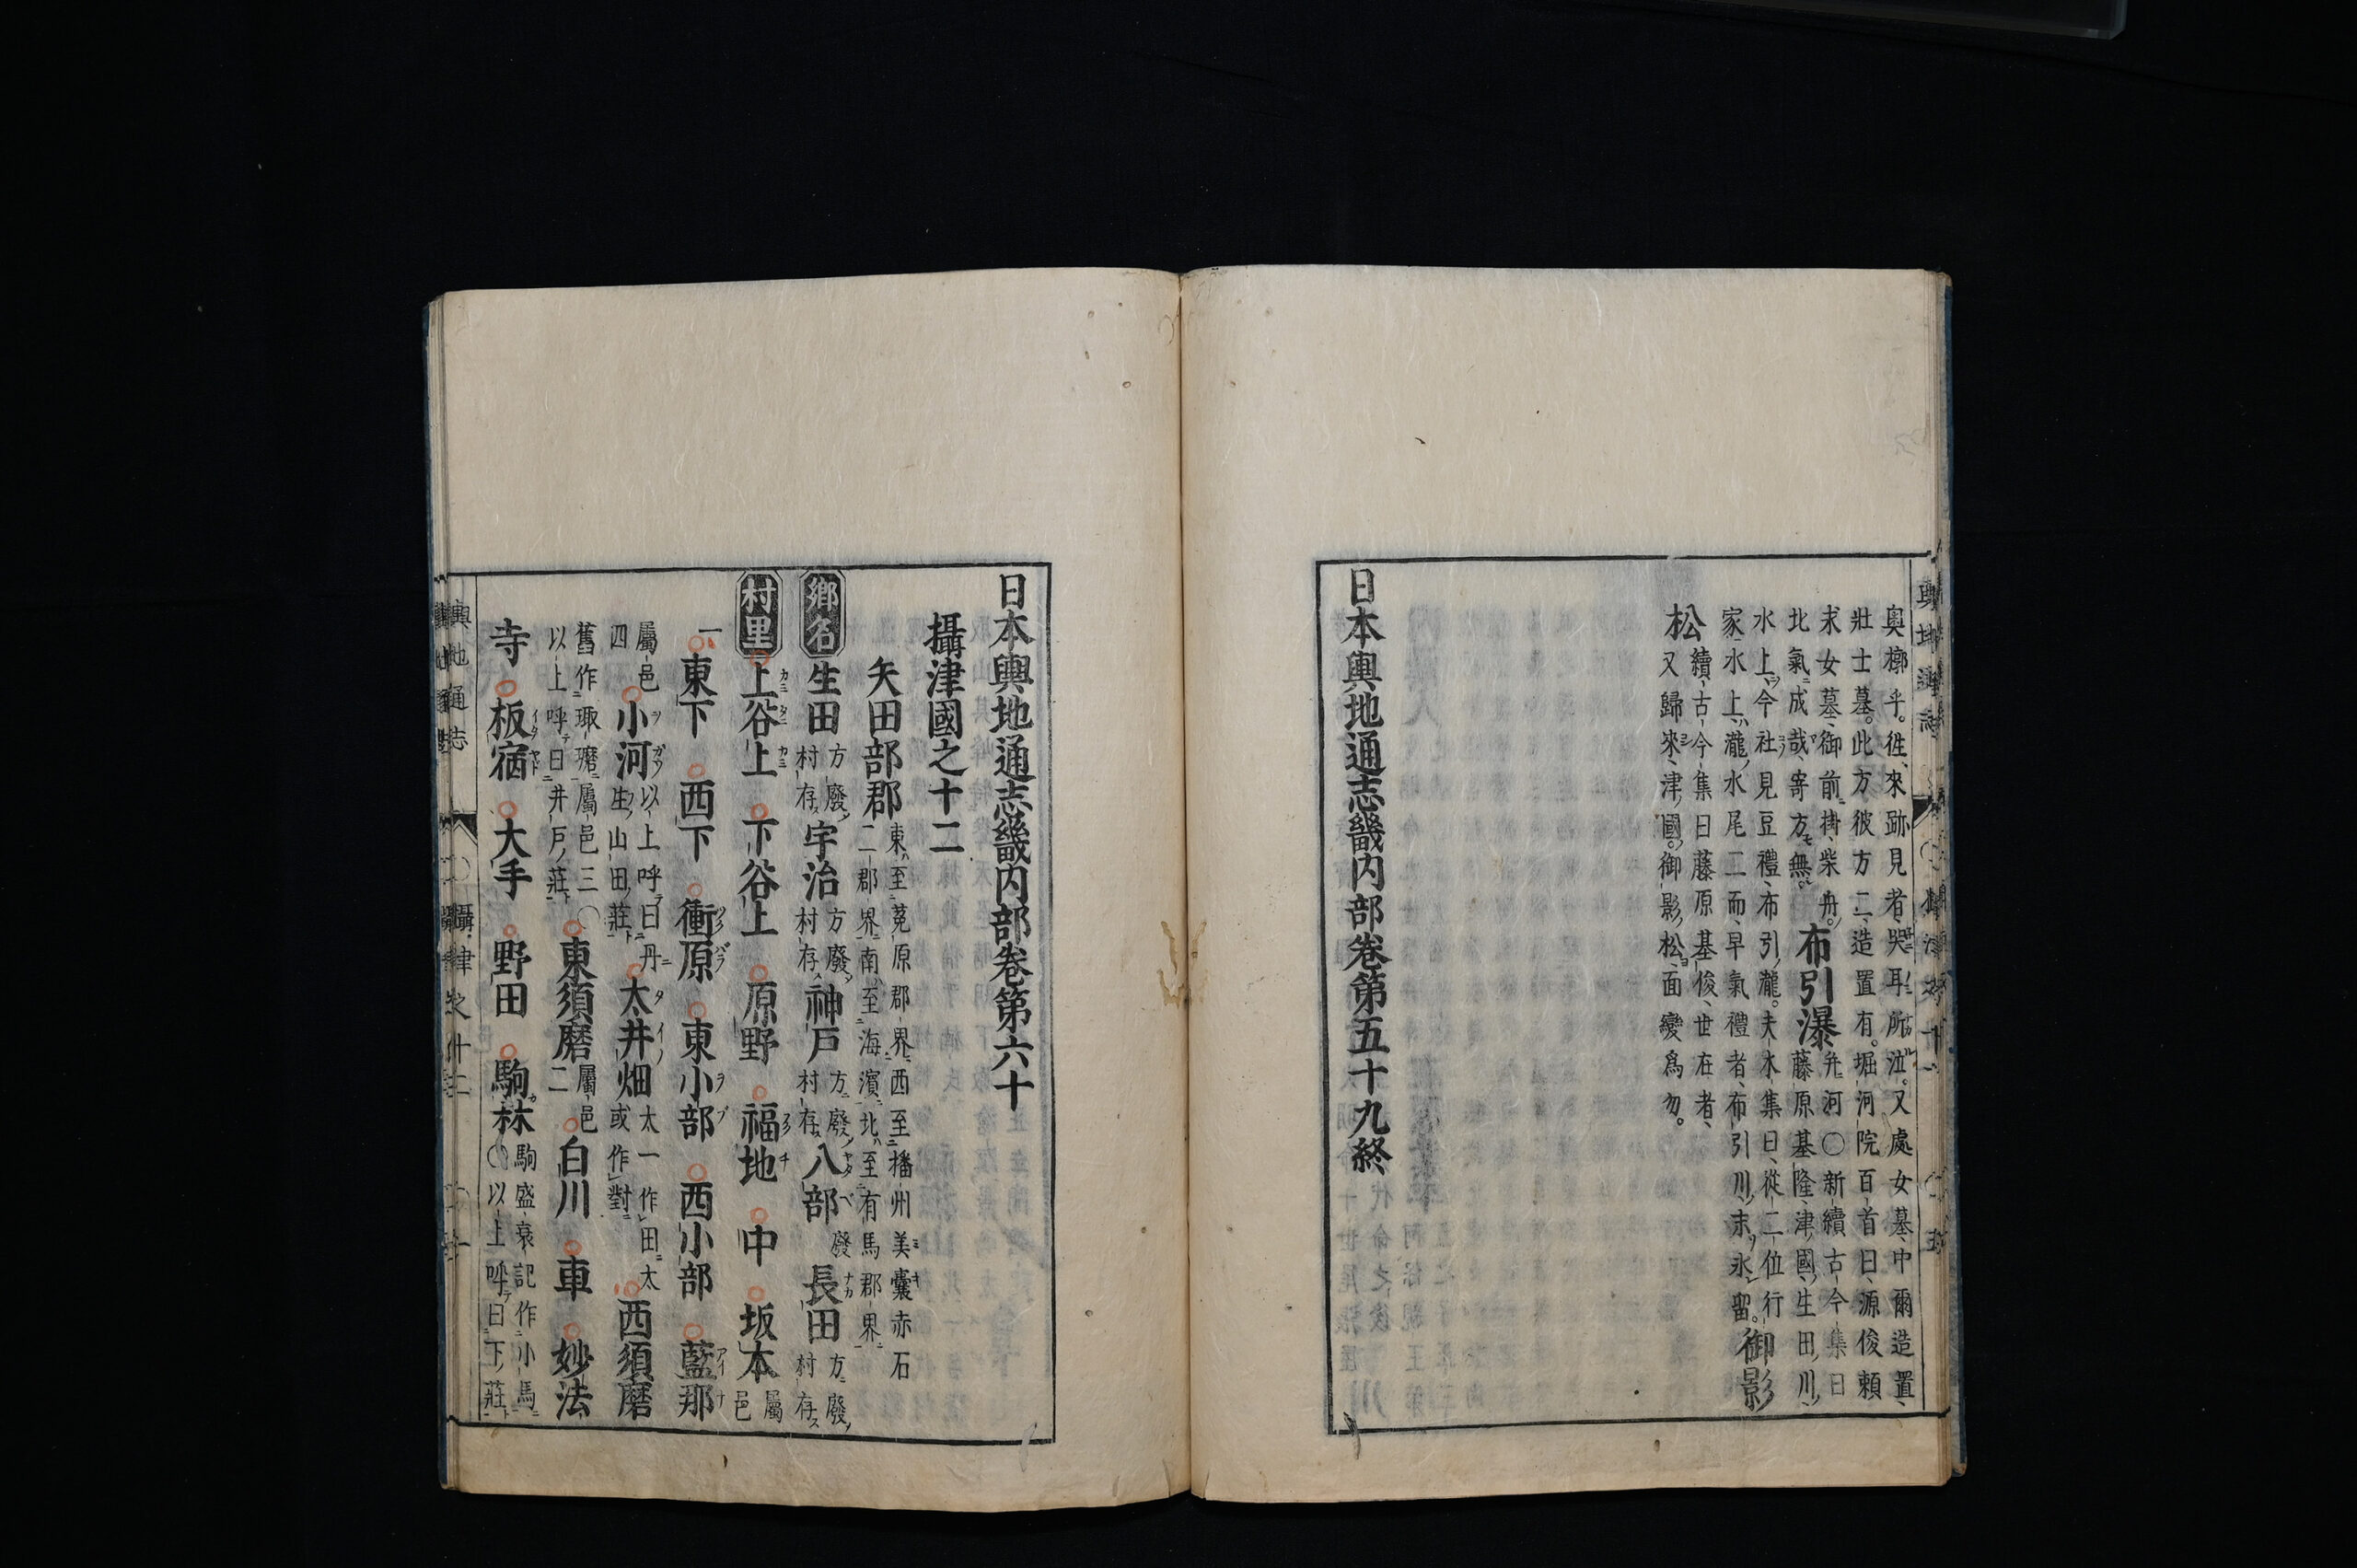 奥槨乎。徃、來、跡見者、哭耳所泣。又處女墓、中爾造置、
壯士墓。此方彼方二、造置有。堀河院百首曰、源俊頼
求女墓、御前掛、柴舟。布引瀑弁河〇新續古今集曰
北氣成哉、寄方無。藤原基隆、津國生田川、
水上今社見豆禮、布引瀧。夫木集曰、從二位行
家水上瀧水尾二而、早氣禮者、布引川末氷留。御影
松續古今集曰藤原基俊、世在者、
又歸來、津國。御影松、面變爲勿。
日本輿地通志畿内部卷第五十九終
日本輿地通志畿内部卷第六十
攝津國之十二
矢田部郡東至菟原郡界西至播州美囊赤石
二郡界南至海濱北至有馬郡界
鄉名生田方廢村存宇治方廢村存神戸方廢村存八部廢長田方廢村存
村里上谷上〇下谷上〇原野〇福地〇中〇坂本屬邑
一〇東下〇西下〇衝原〇東小部〇西小部〇藍那
屬邑四〇小河以上呼曰丹生山田莊〇太井畑太一作田太或作對〇西須磨
舊作珷㻴屬邑三〇以上呼曰井戸莊〇東須磨屬邑二〇白川〇車〇妙法
寺〇板宿〇大手〇野田〇駒林駒盛衰記作小馬〇以上呼曰下莊
輿地通志
攝津之十二